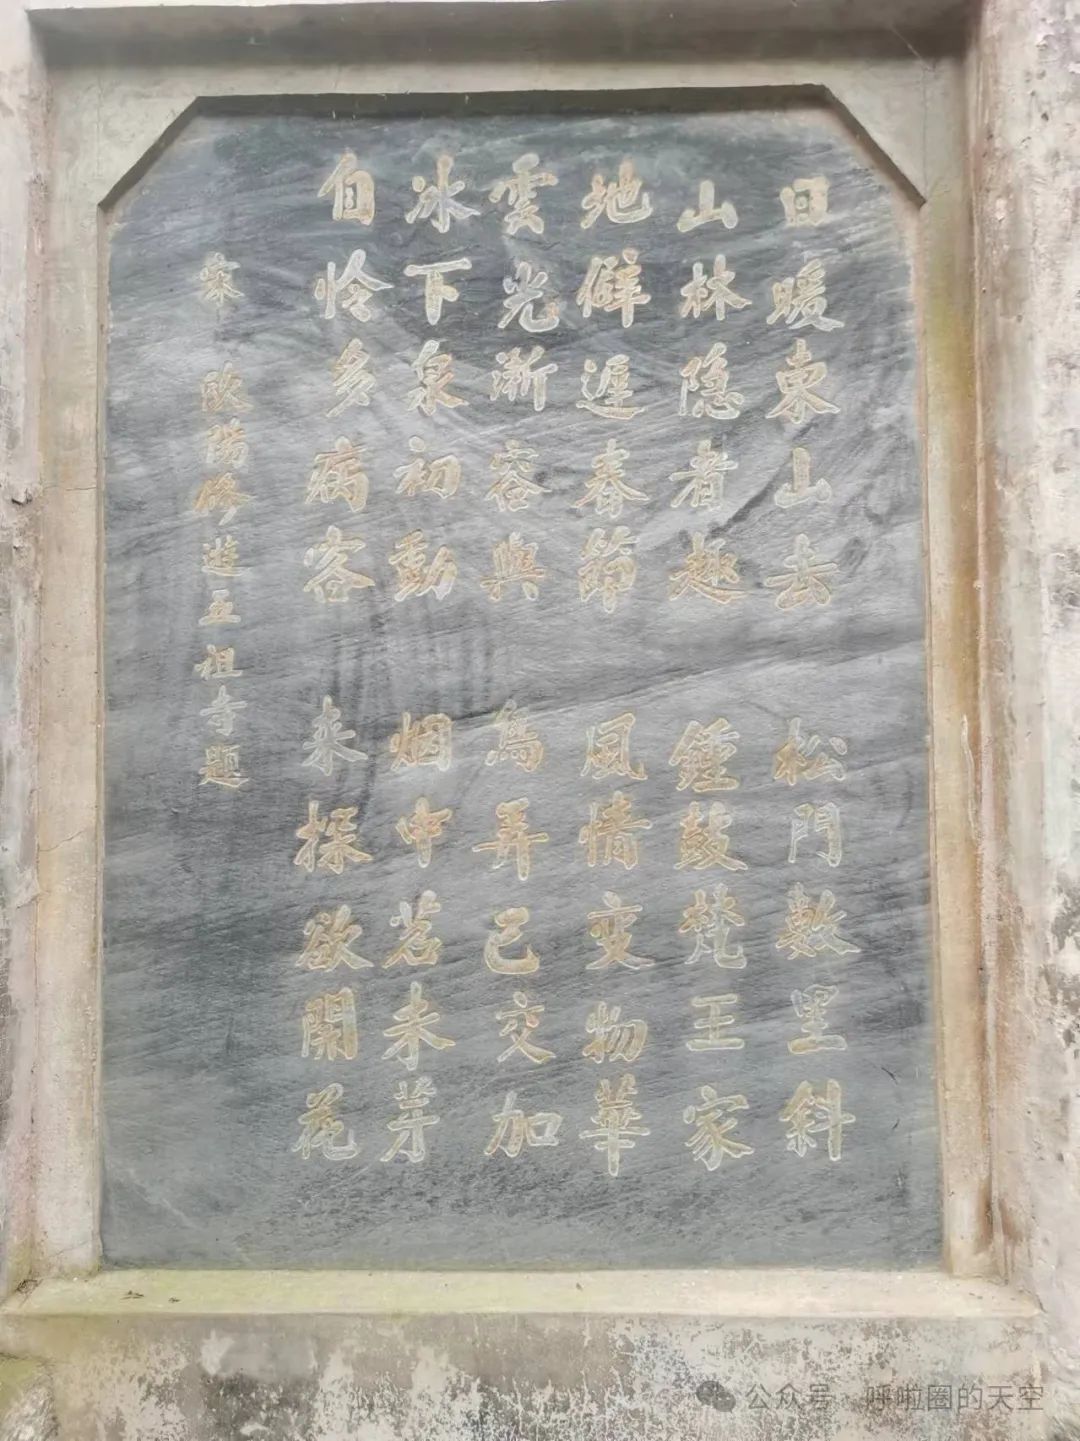 日暖東山去 松門數里斜
山林隐者趣 鍾鼓梵王家
地僻遲春節 風情变物華
雲光漸容與 鳥弄已交加
冰下泉初動 烟中茗未芽
自怜多病客 来探欲開花
宋 欧陽修遊五祖寺题
公众号 · 呼啦圈的天空